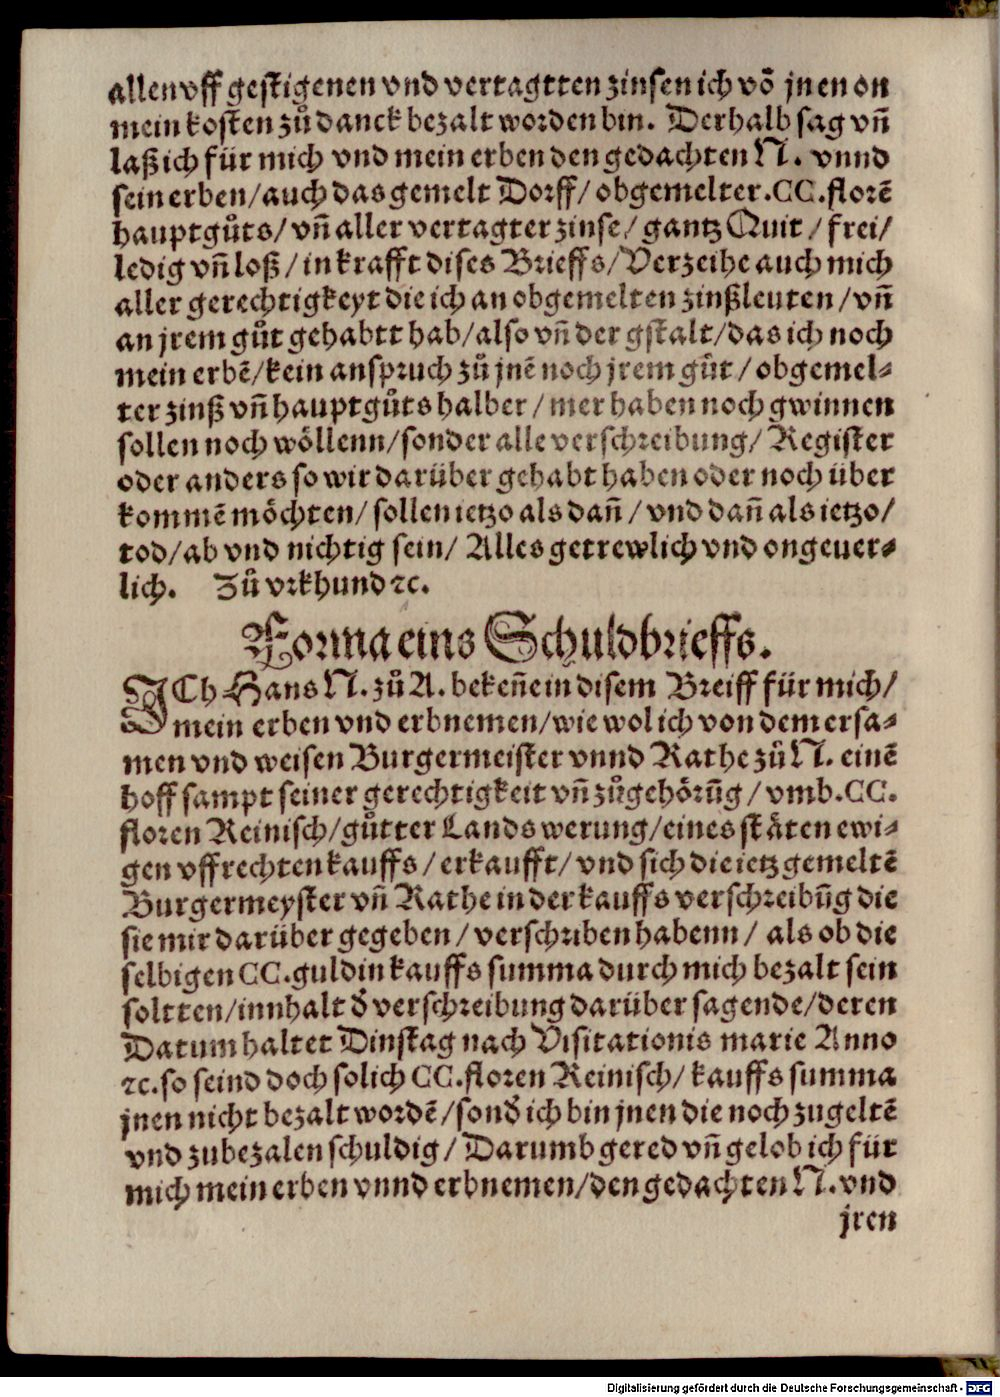 allen vff gestigenen vnd vertagtten zinsen ich võ jnen on
mein kosten zů danck bezalt worden bin. Derhalb sag vñ
laß ich für mich vnd mein erben den gedachten N. vnnd
sein erben/auch das gemelt Dorff/ obgemelter .CC. florẽ
hauptgůts/ vñ aller vertagter zinse/ gantz Quit/ frei/
ledig vñ loß/ in krafft dises Brieffs/ Verzeihe auch mich
aller gerechtigkeyt die ich an obgemelten zinßleuten/ vñ
an jrem gůt gehabtt hab/ also vñ der gstalt/ das ich noch
mein erbẽ/ kein anspruch zů jnẽ noch jrem gůt/ obgemel⸗
ter zinß vñ hauptgůts halber/ mer haben noch gwinnen
sollen noch wöllenn/ sonder alle verschreibung/ Register
oder anders so wir darüber gehabt haben oder noch über
kommẽ möchten/ sollen ietzo als dañ/ vnd dañ als ietzo/
tod/ ab vnd nichtig sein/ Alles getrewlich vnd ongeuer⸗
lich. Zů vrkhund ꝛc.
Forma eins Schuldbrieffs.
ICh Hans N. zů A. bekeñe in disem Breiff für mich/
mein erben vnd erbnemen/ wie wol ich von dem ersa⸗
men vnd weisen Burgermeister vnnd Rathe zů N. einẽ
hoff sampt seiner gerechtigkeit vñ zůgehörũg/ vmb .CC.
floren Reinisch/ gůtter Lands werung/ eines stäten ewi⸗
gen vffrechten kauffs/ erkaufft/ vnd sich die ietz gemeltẽ
Burgermeyster vñ Rathe in der kauffs verschreibũg die
sie mir darüber gegeben/ verschriben habenn/ als ob die
selbigen CC. guldin kauffs summa durch mich bezalt sein
soltten/ innhalt ð verschreibung darüber sagende/ deren
Datum haltet Dinstag nach Visitationis marie Anno
ꝛc. so seind doch solich CC. floren Reinisch/ kauffs summa
jnen nicht bezalt wordẽ/ sonð ich bin jnen die noch zugeltẽ
vnd zubezalen schuldig/ Darumb gered vñ gelob ich für
mich mein erben vnnd erbnemen/ den gedachten N. vnd
jren
Digitalisierung gefördert durch die Deutsche Forschungsgemeinschaft - DFG